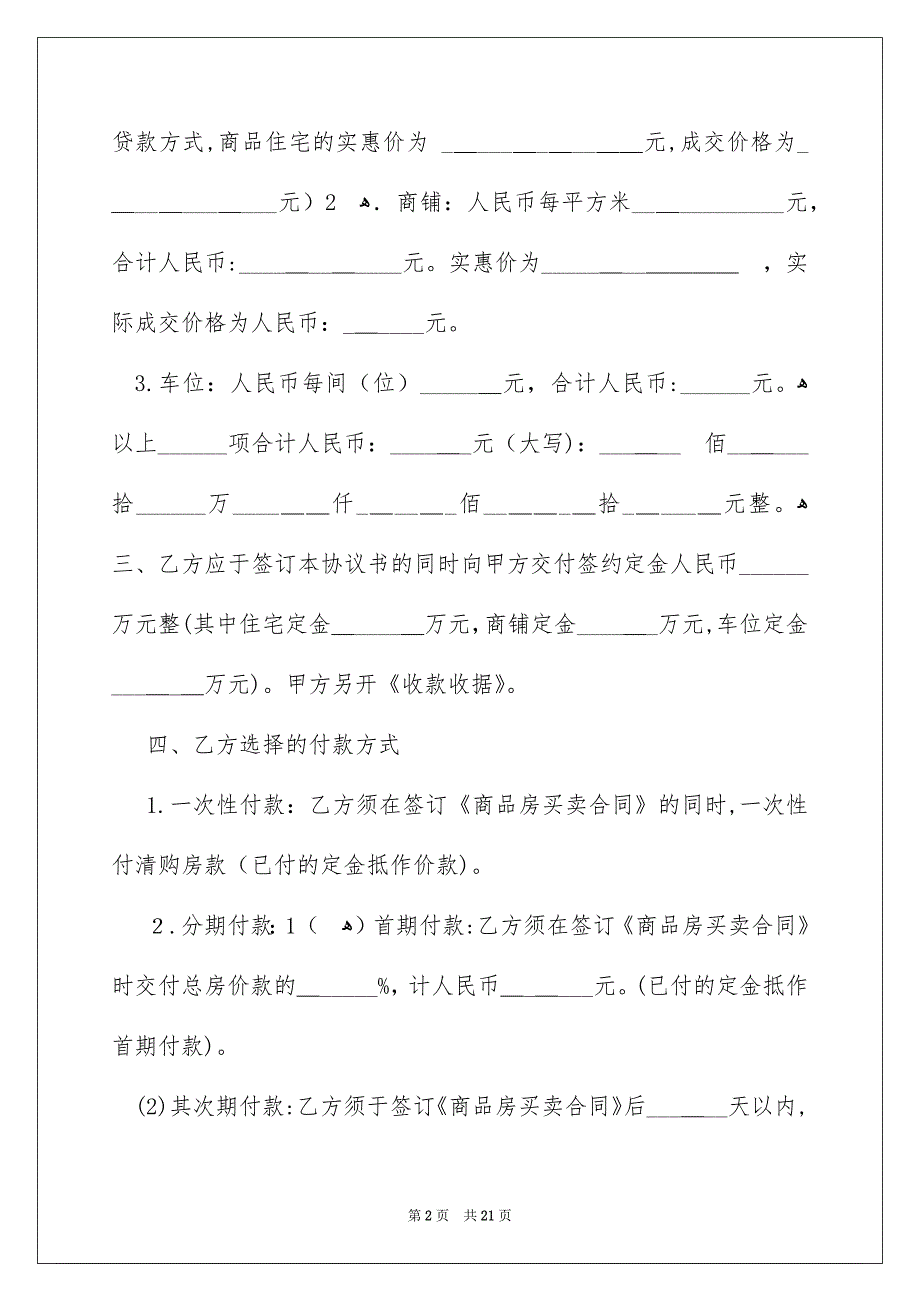 贷款方式,商品住宅的实惠价为 _________________元,成交价格为_
______________元）2 ﻫ．商铺：人民币每平方米_____________元，
合计人民币:______________元。实惠价为_________________ ，实
际成交价格为人民币：_______元。
3.车位：人民币每间（位）_______元，合计人民币:______元。ﻫ
以上______项合计人民币：_______元（大写)：_______ 佰_______
拾______万________仟________佰_________拾________元整。ﻫ
三、乙方应于签订本协议书的同时向甲方交付签约定金人民币______
万元整(其中住宅定金________万元,商铺定金_______万元,车位定金
________万元)。甲方另开《收款收据》。
四、乙方选择的付款方式
1.一次性付款：乙方须在签订《商品房买卖合同》的同时,一次性
付清购房款（已付的定金抵作价款)。
２.分期付款：1（ ﻫ）首期付款:乙方须在签订《商品房买卖合同》
时交付总房价款的_______%，计人民币________元。(已付的定金抵作
首期付款)。
(2)其次期付款:乙方须于签订《商品房买卖合同》后_______天以内,
第 2 页 共 21 页